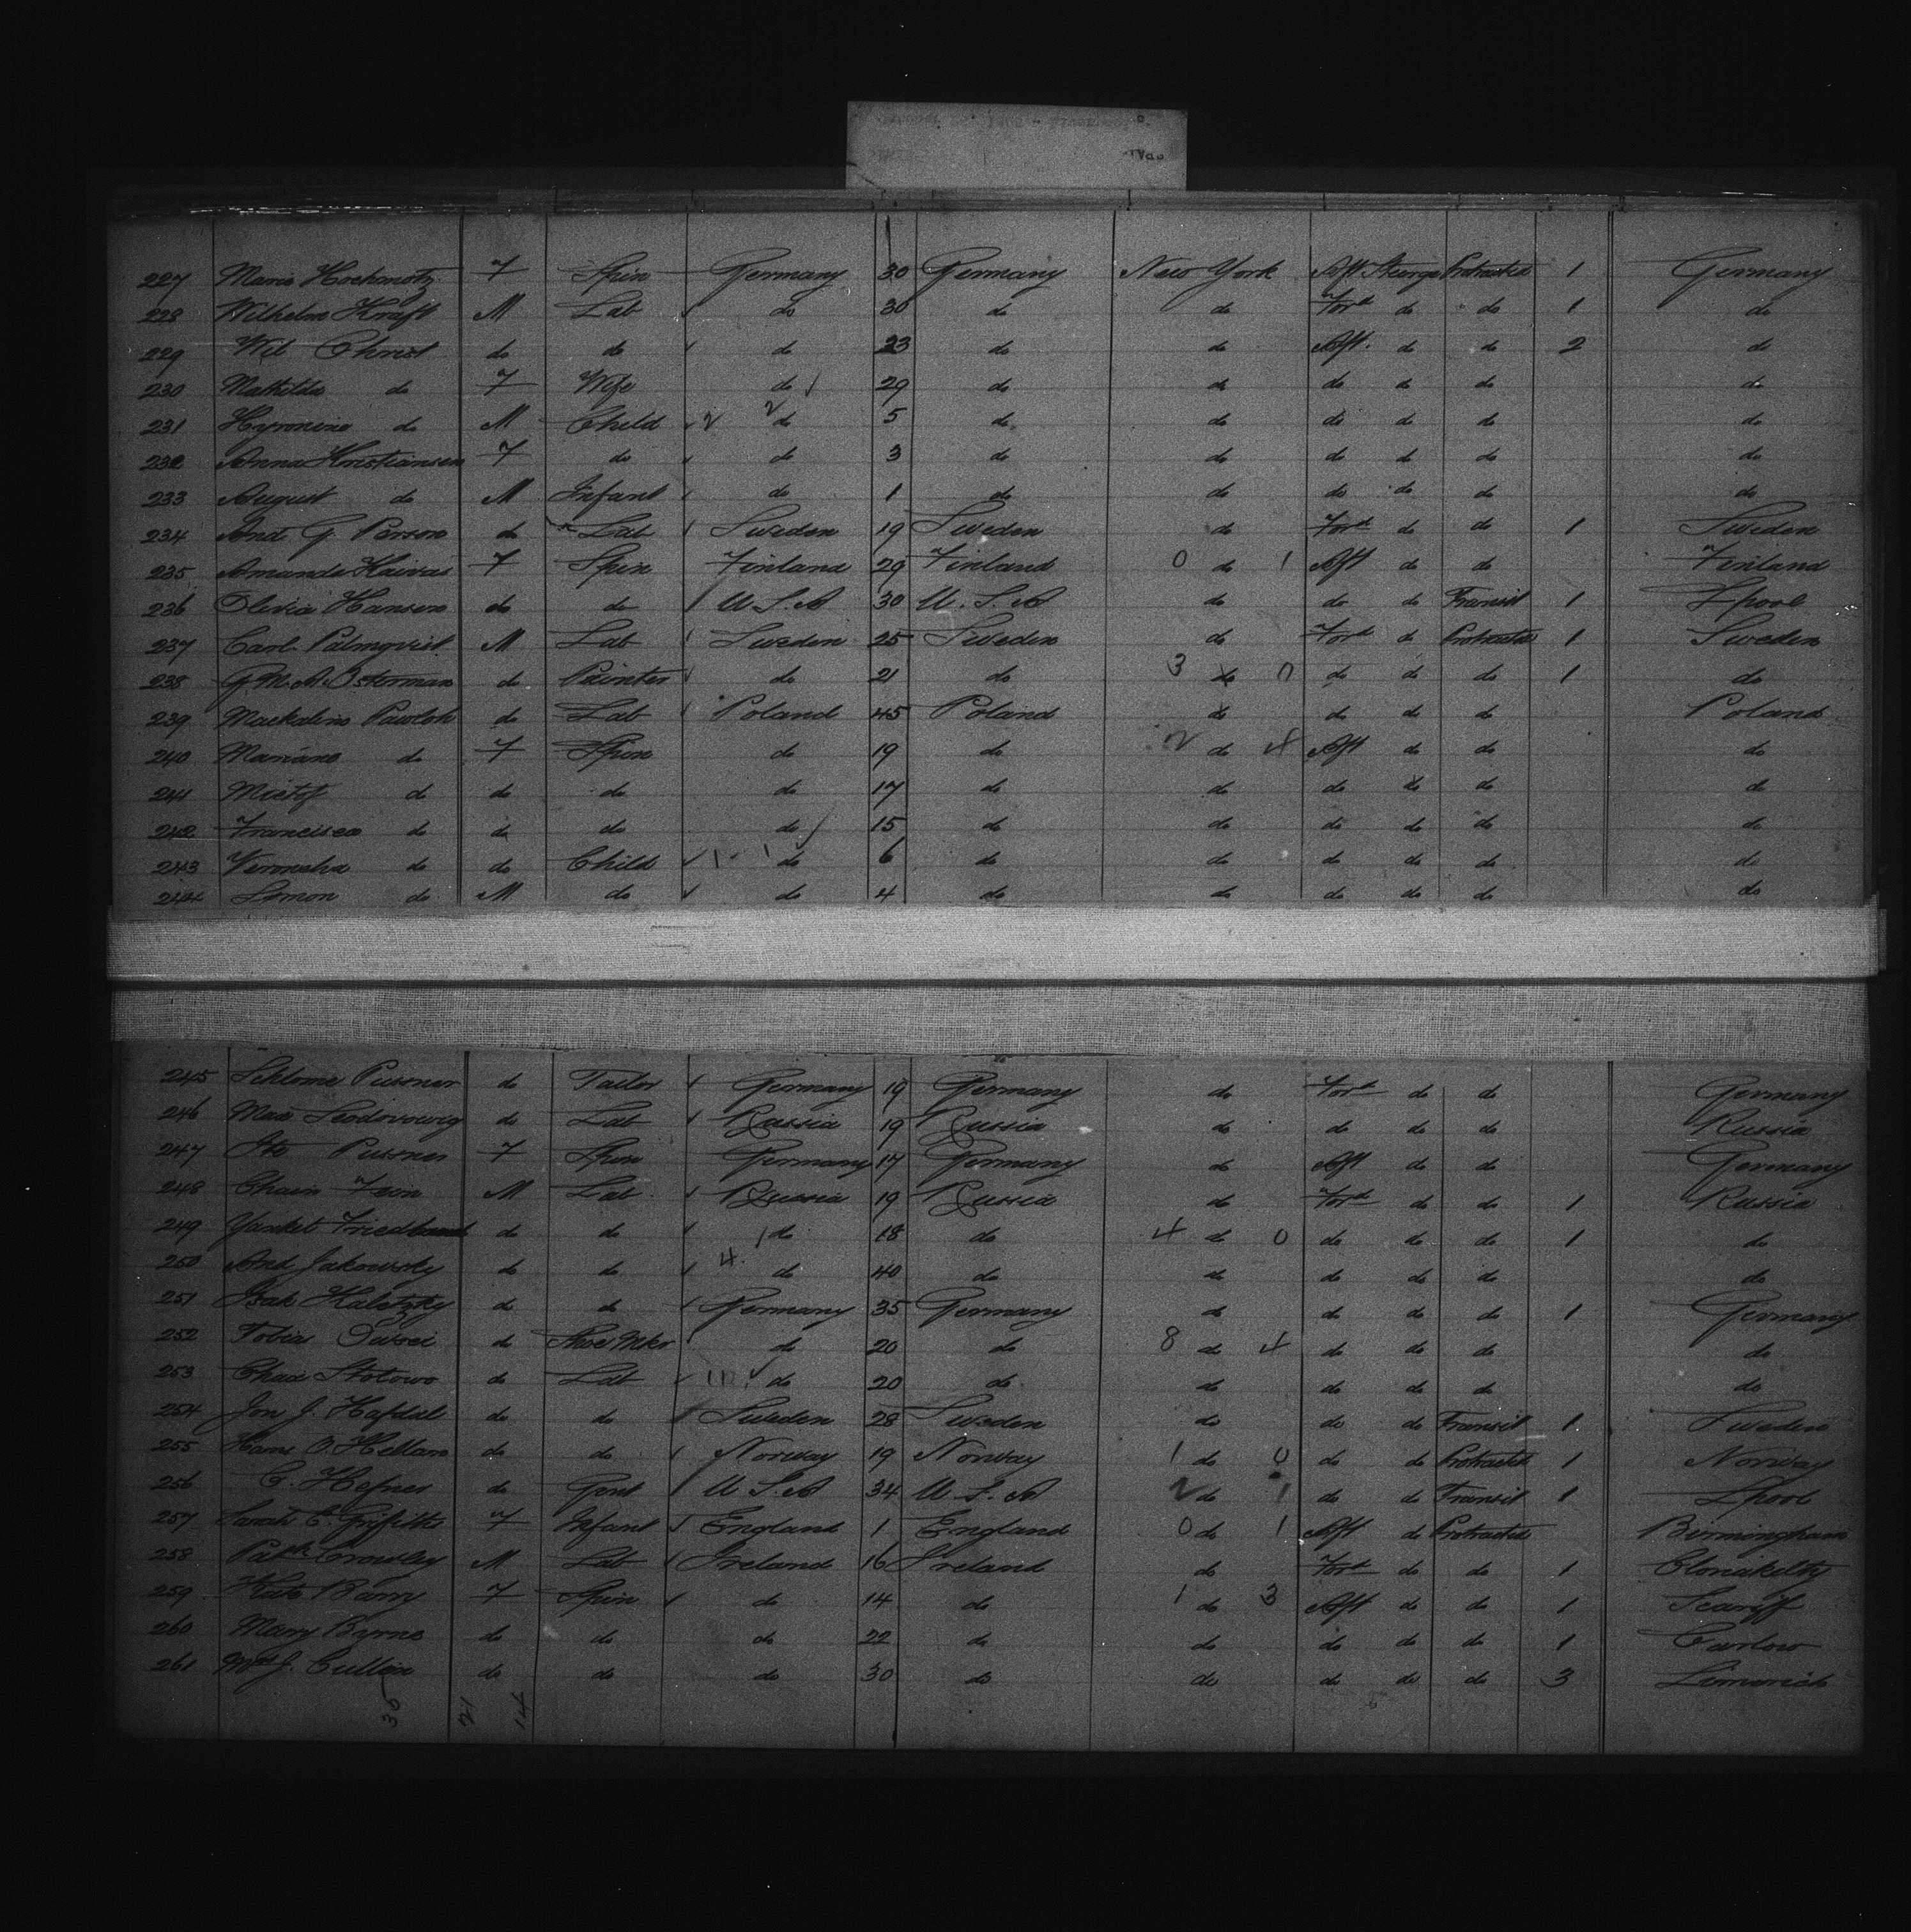 227 Maria Hochmotz F Spin Germany 30 Germany New York Aft Steerage Protracted 1 Germany
228 Wilhelm Kraft M Lab do 30 do do Ford do do 1 do
229 Wil Christ do do do 23 do do Aft. do do 2 do
230 Mathilda do F Wife do 29 do do do do do do
231 Hyronime do M Child 2 2 do 5 do do do do do do
232 Anna Kristiansen F do do 3 do do do do do do
233 August do M Infant do 1 do do do do do do
234 And G. Person do Lab Sweden 19 Sweden do Ford do do 1 Sweden
235 Amanda Kaivas F Spin Finland 29 Finland 0 do 1 Aft do do Finland
236 Olivia Hansen do do U.S.A 30 U.S.A do do do Transit 1 Lpool
237 Carl Palmqvist M Lab Sweden 25 Sweden do Ford do Protracted 1 Sweden
238 G.M.A. Osterman do Painter do 21 do 3 do 0 do do do 1 do
239 Mackalina Pawloh do Lab Poland 45 Poland do do do do Poland
240 Mariana do F Spin do 19 do 2 do 4 Aft do do do
241 do do do do 17 do do do do do do
242 Francisca do do do do 15 do do do do do do
243 Veroneha do do Child 1 - 1 do 6 do do do do do do
244 Simon do M do do 4 do do do do do do
245 Schlome Pusner do Tailor Germany 19 Germany do Ford do do Germany
246 Max do Lab Russia 19 Russia do do do do Russia
247 Pusner F Spin Germany 17 Germany do Aft do do Germany
248 Chaim Fein M Lab Russia 19 Russia do Ford do do 1 Russia
249 Yankel do do 1 do 18 do 4 do 0 do do do 1 do
250 And Jakowsky do do 4. do 40 do do do do do do
251 Isak Kaletzky do do Germany 35 Germany do do do do 1 Germany
252 Tobias do Shoe Mkr do 20 do 8 do 4 do do do do
253 Chaie Stolowo do Lab do 20 do do do do do do
254 Jon J. Hafdal do do Sweden 28 Sweden do do do Transit 1 Sweden
255 Hans O. Hellam do do Norway 19 Norway 1 do 0 do do Protracted 1 Norway
256 C. Hefner do Gent U.S.A 34 U.S.A 2 do 1 do do Transit 1 Lpool
257 Sarah E. Griffiths F Infant England 1 England 0 do 1 Aft do Protracted Birmingham
258 Patk Crowley M Lab Ireland 16 Ireland do Ford do do 1 Clonakelty
259 Kate Barry F Spin do 14 do 1 do 3 Aft do do 1 Scariff
260 Mary Byrne do do do 22 do do do do do 1 Carlow
261 Mrs J. Cullen do do do 30 do do do do do 3 Limerick
35 21 14